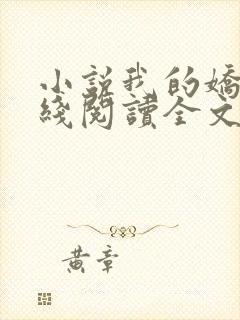 小説我的嬌
綫閱讀全文
黄章